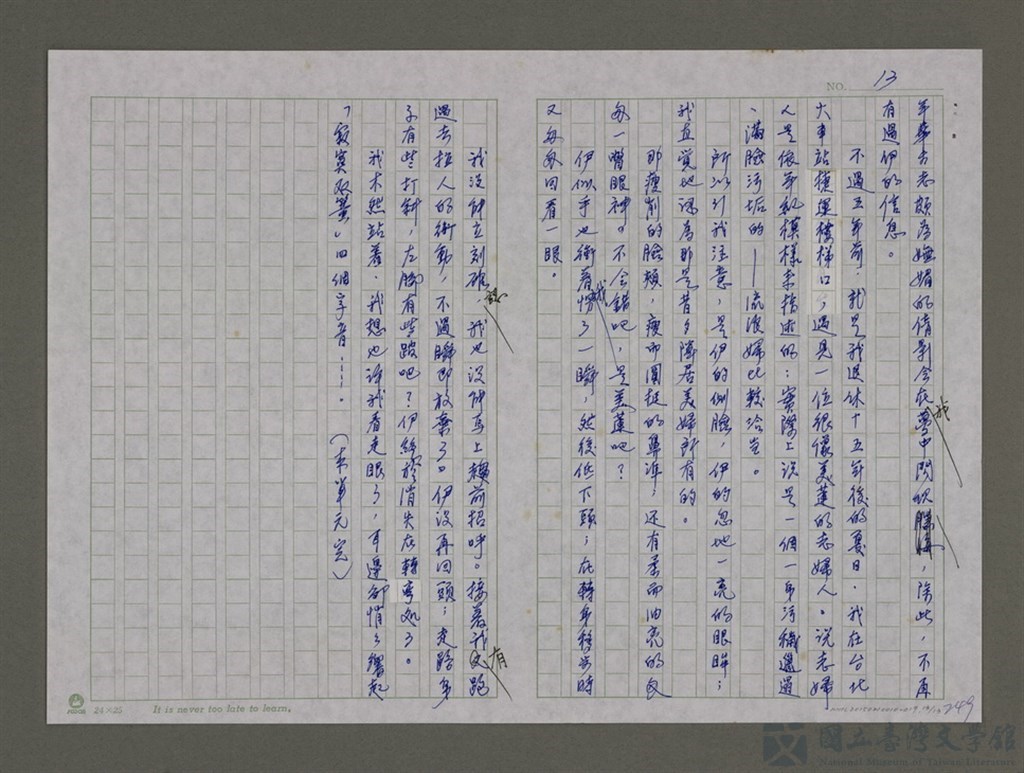 NO. 13
年華去老頗為嫵媚的倩影會在我夢中閃現，除此，不再
有過伊的信息。
不過五年前，就是我退休十五年後的夏日，我在台北
大車站捷運樓梯口，遇見一位很像美蓮的老婦人。說老婦
人是依年紀模樣來描述的；實際上該是一個一身污穢邋遢
、滿臉污垢的——流浪婦比較恰當。
所以引我注意，是伊的側臉，伊的忽地一亮的眼眸；
我直覺地認為那是昔日隣居美婦所有的。
那瘦削的臉頰，瘦而圓挺的鼻準；還有柔而油亮的
每一瞥眼神。不會錯吧，是美蓮吧？
伊似乎也衝著我愣了一瞬，然後低下頭；在轉身移步時
又匆匆回看一眼。
我沒能立刻確認，我也沒能馬上趨前招呼。接著我有跑
過去拉人的衝動，不過瞬即放棄了。伊沒再回頭；走路身
子有些打斜，左腳有些跛吧？伊終於消失在轉彎處了。
我木然站著，我想也許我看走眼了，耳邊卻悄悄響起
「寂寞双簧」四個字音……。　（本單元完）
24×25 It is never too late to learn.
249
國立臺灣文學館
National Museum of Taiwan Literature